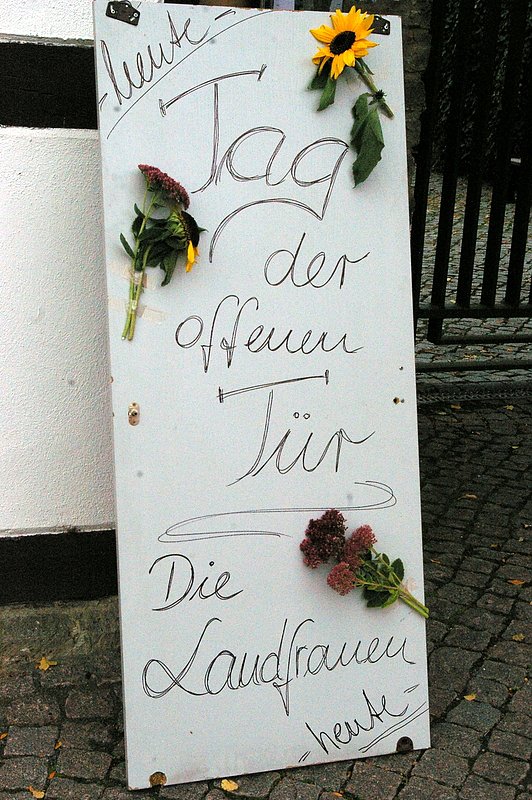 -heute-
Tag
der
offenen
Tür
Die
Landfrauen
-heute-